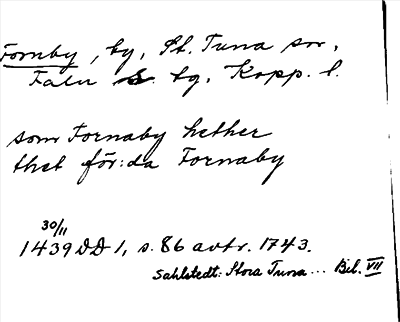 Fornby, by, St. Tuna sn,
Falu S. tg, Kopp. l.
som Fornaby hether
thet för:da Fornaby
30/11
1439 DD 1, s. 86 avtr. 1743.
Sahlstedt: Stora Tuna... Bil. VII